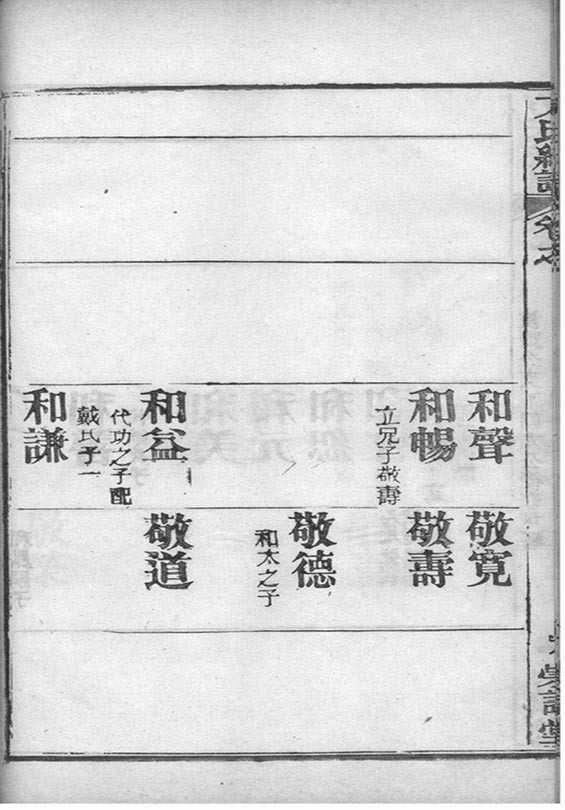 氏統譜
卷之
堂
和聲
和暢
立兄子敬壽
和益
代功之子配
戴氏子一
和謙
敬寬
敬壽
敬德
和太之子
敬道